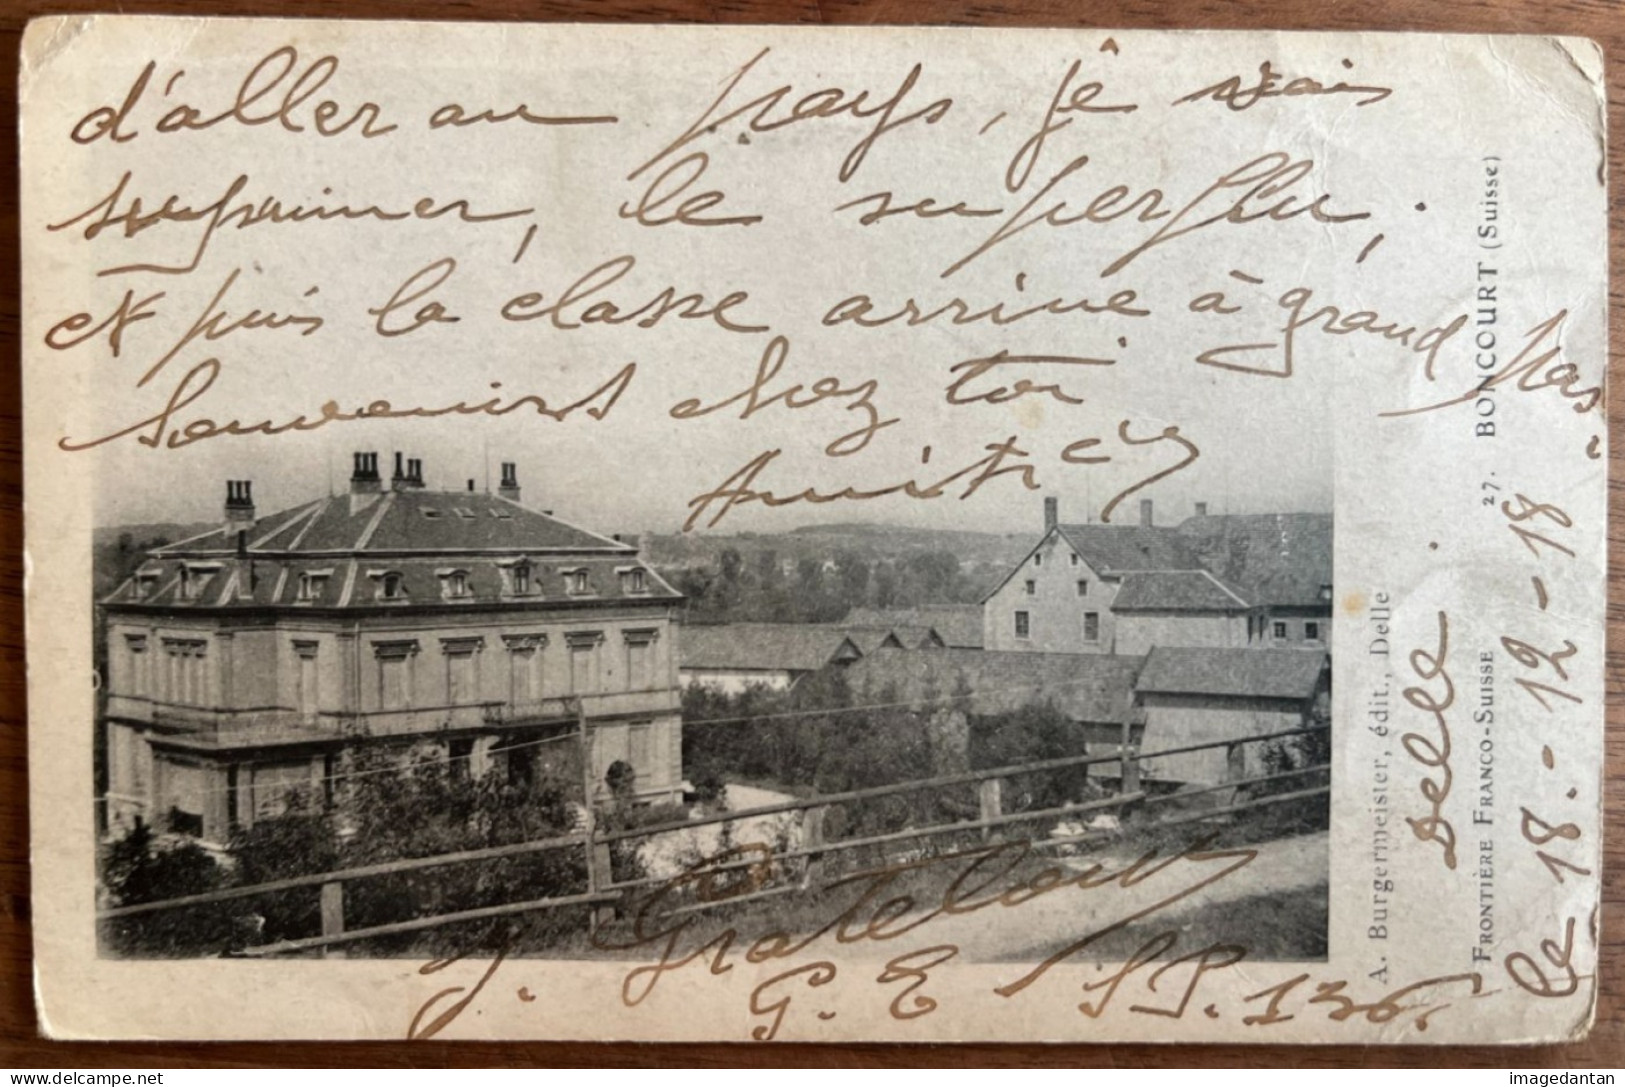 d'aller au pays, je vais
supprimer, le superflu,.
et puis la classe arrive à grand pas.
Souvenirs chez toi
Amitiés
J.
G. E S P. 136.
Delle
le 18.-12-18
A. Burgermeister, édit., Delle
27. BONCOURT (Suisse)
FRONTIÈRE FRANCO-SUISSE
imagedantan